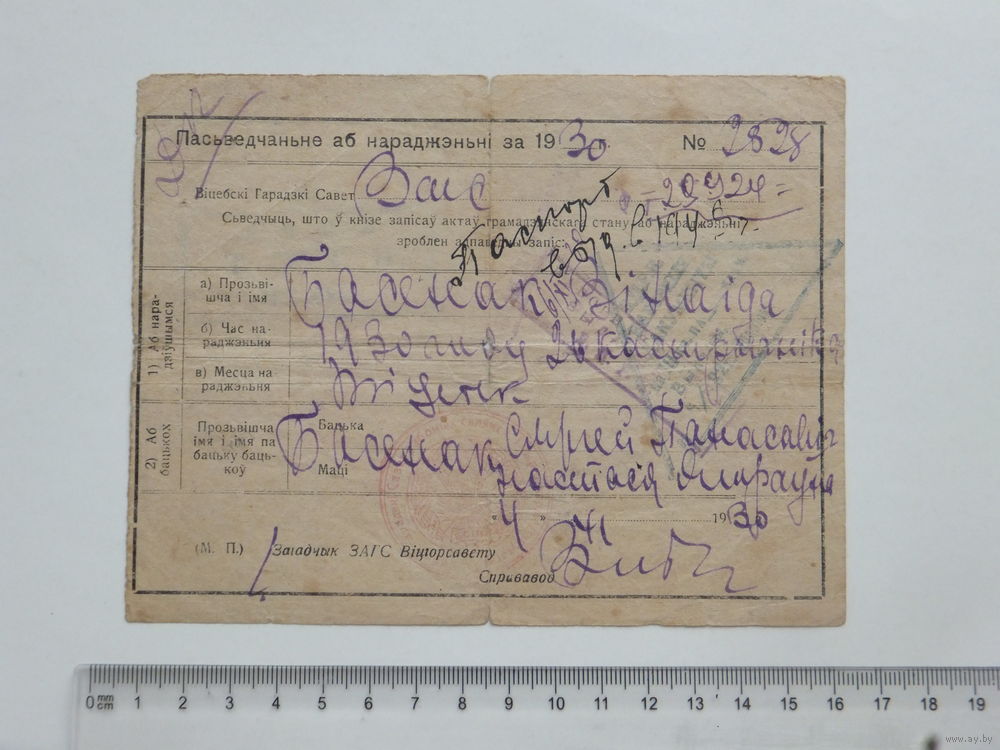 Пасьведчаньне аб нараджэньні за 1930 г. № 2828
Віцебскі Гарадзкі Савет Загс
Сьведчыць, што ў кнізе запісаў актаў грамадзянскага стану аб нараджэньні
зроблен адпаведны запіс:
Паспорт
1) Аб нара-
дзіўшымся
а) Прозьві-
шча і імя
Басенак Зінаіда
б) Час на-
раджэньня
1930 году 26 кастрычніка
в) Месца на-
раджэньня
Віцебск
2) Аб
бацькох
Прозьвішча
імя і імя па
бацьку баць-
коў
Бацька
Маці
Басенак Сяргей Панасавіч
Настася
„ 4 “ XI 1930
(М. П.) Загадчык ЗАГС Віцгорсавету
Справавод
0 mm cm 1 2 3 4 5 6 7 8 9 10 11 12 13 14 15 16 17 18 19
www.ay.by